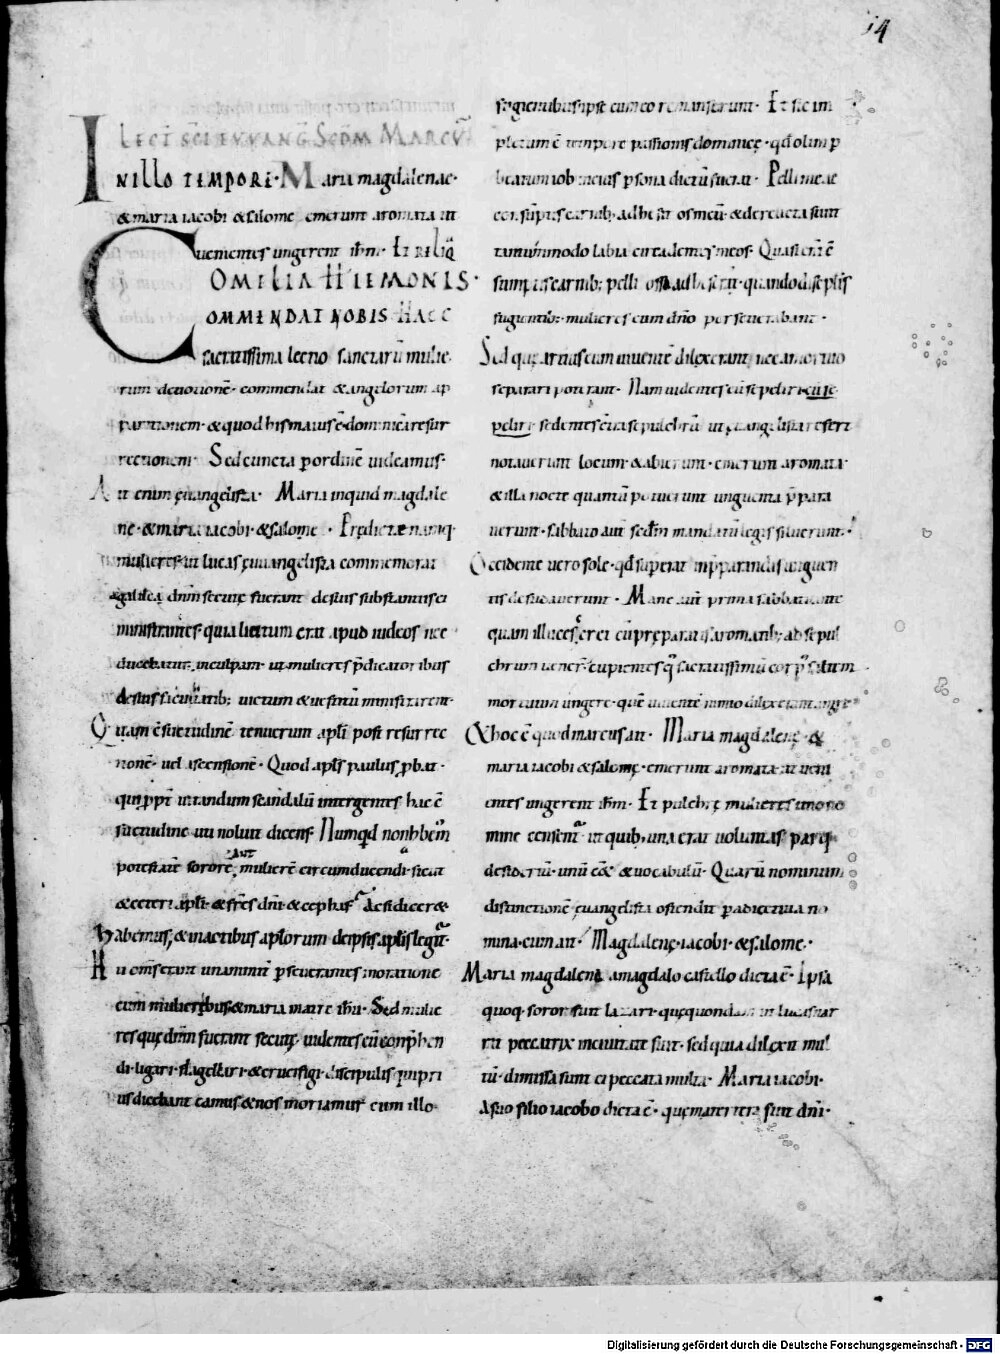 14
LECT SCI EVVANG SCDM MARCV̅
IN ILLO TEMPORE· Maria magdalenae·
& maria iacobi & salome emerunt aromata ut
uenientes ungerent ihm̅· Et reliq̅
OMELIA HIEMONIS·
COMMENDAT NOBIS HAEC
sacratissima lectio sanctaru̅ mulie
rum deuotione̅· commendat & angelorum ap
paritionem· & quod his maius e̅· dominica̅ resur
rectionem· Sed cuncta p ordine̅ uideamus·
Ait enim euangelista· Maria inquid magdale
ne· & maria iacobi· & salome· Predictae namq·
mulieres· ut lucas euuangelista commemorat
a galilea dnm̅ secute fuerant de suis substantiis ei
ministrantes· quia licitum erat apud iudeos nec
ducebatur in culpam· ut mulieres p̅dicatoribus
de suis uictum & uestitu̅ ministrarent·
Qua̅ c̅suetudine̅ tenuerum apl̅i post resurrec
tione̅· uel ascensione̅· Quod apl̅s paulus p̅bat·
qui ppt̅ uitandum scandalu̅ intergentes hac c̅
suetudine uti noluit dicens· Numqd non habem̅
potestate̅ sorore̅ aut muliere̅ circumducendi· sicut
& ceteri apl̅i· & fr̅es dn̅i· & cephas·
habemus· & in actibus apl̅orum de ipsis apl̅is legit̅·
Hi om̅s erant unanimit̅ p seuerantes in oratione
cum mulieribus & maria matre ih̅u· Sed mulie
res quę dnm̅ fuerant secutę· uidentes eu̅ conp̅hen
di· ligari· flagellari· & crucifigi· discipulis qui pri
us dicebant eamus & nos moriamur cum illo
fugientibus ipsę cum eo remanserunt· Et sic im
pletum e̅ tempore passionis dominicę· qd̅ olim p
beatum iob in eius p sona dictu̅ fuerat· Pelli meae
consu̅ptis carnib; adhesit os meu̅· & derelicta sunt
tantummodo labia circa dentes meos· Quasi
su̅mptis carnib; pelli ossa adheser̅· quando discipl̅is
fugientib; mulieres cum dn̅o perseuerabant·
Sed quę artius eum uiuente̅ dilexerant nec a mortuo
separari poterant· Nam uidentes eu̅ sepeliri cu̅ se
peliri· sedentes c̅tra sepulchru̅ ut euangelista refert
notauerunt locum· & abierunt· emerunt aromata·
& illa nocte quantu̅ potuerunt unguenta p̅para
uerunt· sabbato aut̅ secd̅m mandatu̅ legis siluerunt·
Occidente uero sole· qd̅ superat in p̅parandis unguen
tis desudauerunt· Mane aut̅ prima sabbati ante
quam illucesceret cu̅ pręparatis aromatib; ad sepul
chrum uener̅· cupientes sacratissimu̅ corp̅ saltim
mortuum ungere· que̅ uiuente̅ nimio dilexerant
Et hoc e̅ quod marcus ait· Maria magdalenę· &
maria iacobi & salomę· emerunt aromata· ut ueni
entes ungerent ih̅m· Et pulchrę mulieres uno no
mine censent̅ ut quib; una erat uoluntas par q;
desideriu̅· unu̅ e̅e̅t & uocabulu̅· Quaru̅ nominum
distinctione̅ euangelista ostendit p adiectiua no
mina· cum ait· Magdalenę· iacobi· & salome·
Maria magdalenę a magdalo castello dicta e̅· Ipsa
quoq· soror fuit lazari· quę quondam ut lucas nar
rat peccatrix in ciuitate fuit· sed quia dilexit mul
tu̅· dimissa sunt ei peccata multa· Maria iacobi·
A suo filio iacobo dicta e̅· quę matertera fuit dn̅i·
Digitalisierung gefördert durch die Deutsche Forschungsgemeinschaft · DFG